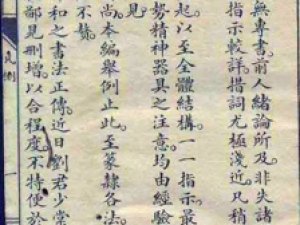 無專書。前人緒論所及。非失諸
指示較詳。措詞尤極淺近。凡稍
起。以至全體結構。一一指示最
勢精神器具之注意。均由經驗
尚。本編舉例止此。至篆隸各法。
不
和之書法正傳。近日劉君少棠
鄙見刪增。以合程度。不特便於
凡例
一